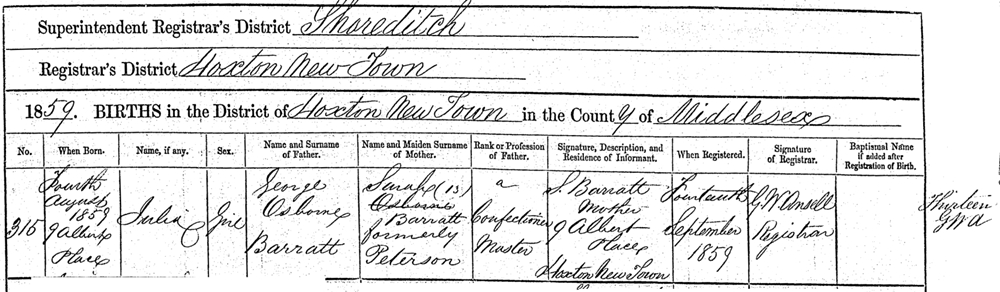 Superintendent Registrar's District Shoreditch
Registrar's District Hoxton New Town
1859. BIRTHS in the District of Hoxton New Town in the County of Middlesex
No. When Born. Name, if any. Sex. Name and Surname of Father. Name and Maiden Surname of Mother. Rank or Profession of Father. Signature, Description, and Residence of Informant. When Registered. Signature of Registrar. Baptismal Name if added after Registration of Birth.
315
Fourth
August
1859
9 Albert
Place
Julia
Girl
George
Osborne
Barratt
Sarah (13)
Osborne
Barratt
formerly
Peterson
a
Confectioner
Master
S. Barratt
Mother
9 Albert
Place
Hoxton New Town
Fourteenth
September
1859
G W Ansell
Registrar
Thirteen
GWA